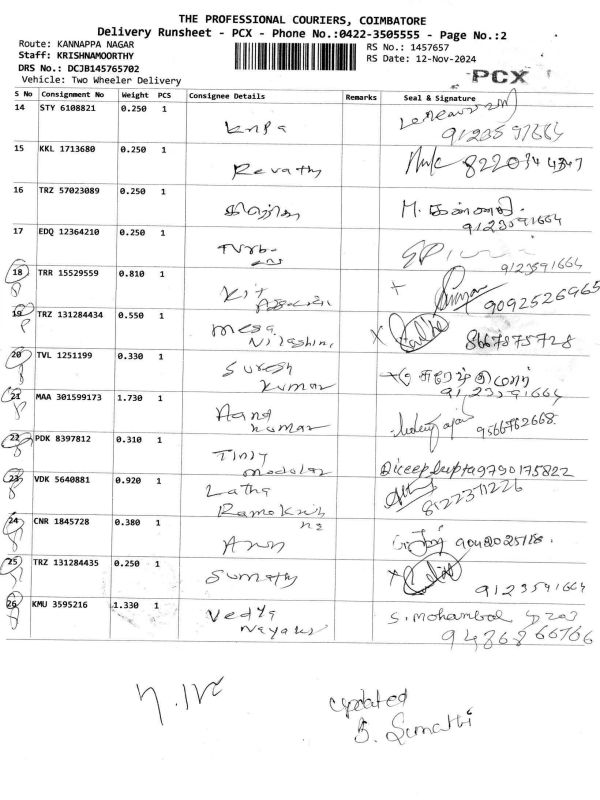 THE PROFESSIONAL COURIERS, COIMBATORE
Delivery Runsheet - PCX - Phone No.:0422-3505555 - Page No.:2
Route: KANNAPPA NAGAR
Staff: KRISHNAMOORTHY
DRS No.: DCJB145765702
Vehicle: Two Wheeler Delivery
RS No.: 1457657
RS Date: 12-Nov-2024
PCX
S No Consignment No Weight PCS Consignee Details Remarks Seal & Signature
14 STY 6108821 0.250 1
9123591664
15 KKL 1713680 0.250 1 Revathy 8220344347
16 TRZ 57023089 0.250 1 M.
9123591664
17 EDQ 12364210 0.250 1
9123591664
18 TRR 15529559 0.810 1 9092526965
19 TRZ 131284434 0.550 1 Mesa
Nilashini 8667875728
20 TVL 1251199 0.330 1 Suresh
Kumar
9123591664
21 MAA 301599173 1.730 1 Anand
Kumar 9566762668
22 PDK 8397812 0.310 1 Tiny
Modular Dileep Gupta 9790175822
23 VDK 5640881 0.920 1 Latha
Ramakrish
8122371226
24 CNR 1845728 0.380 1 Arun
25 TRZ 131284435 0.250 1 Sumathy 9123591664
26 KMU 3595216 1.330 1 Vedya
Nayaki S. Mohanbal
9486866766
updated
B. Sumathi